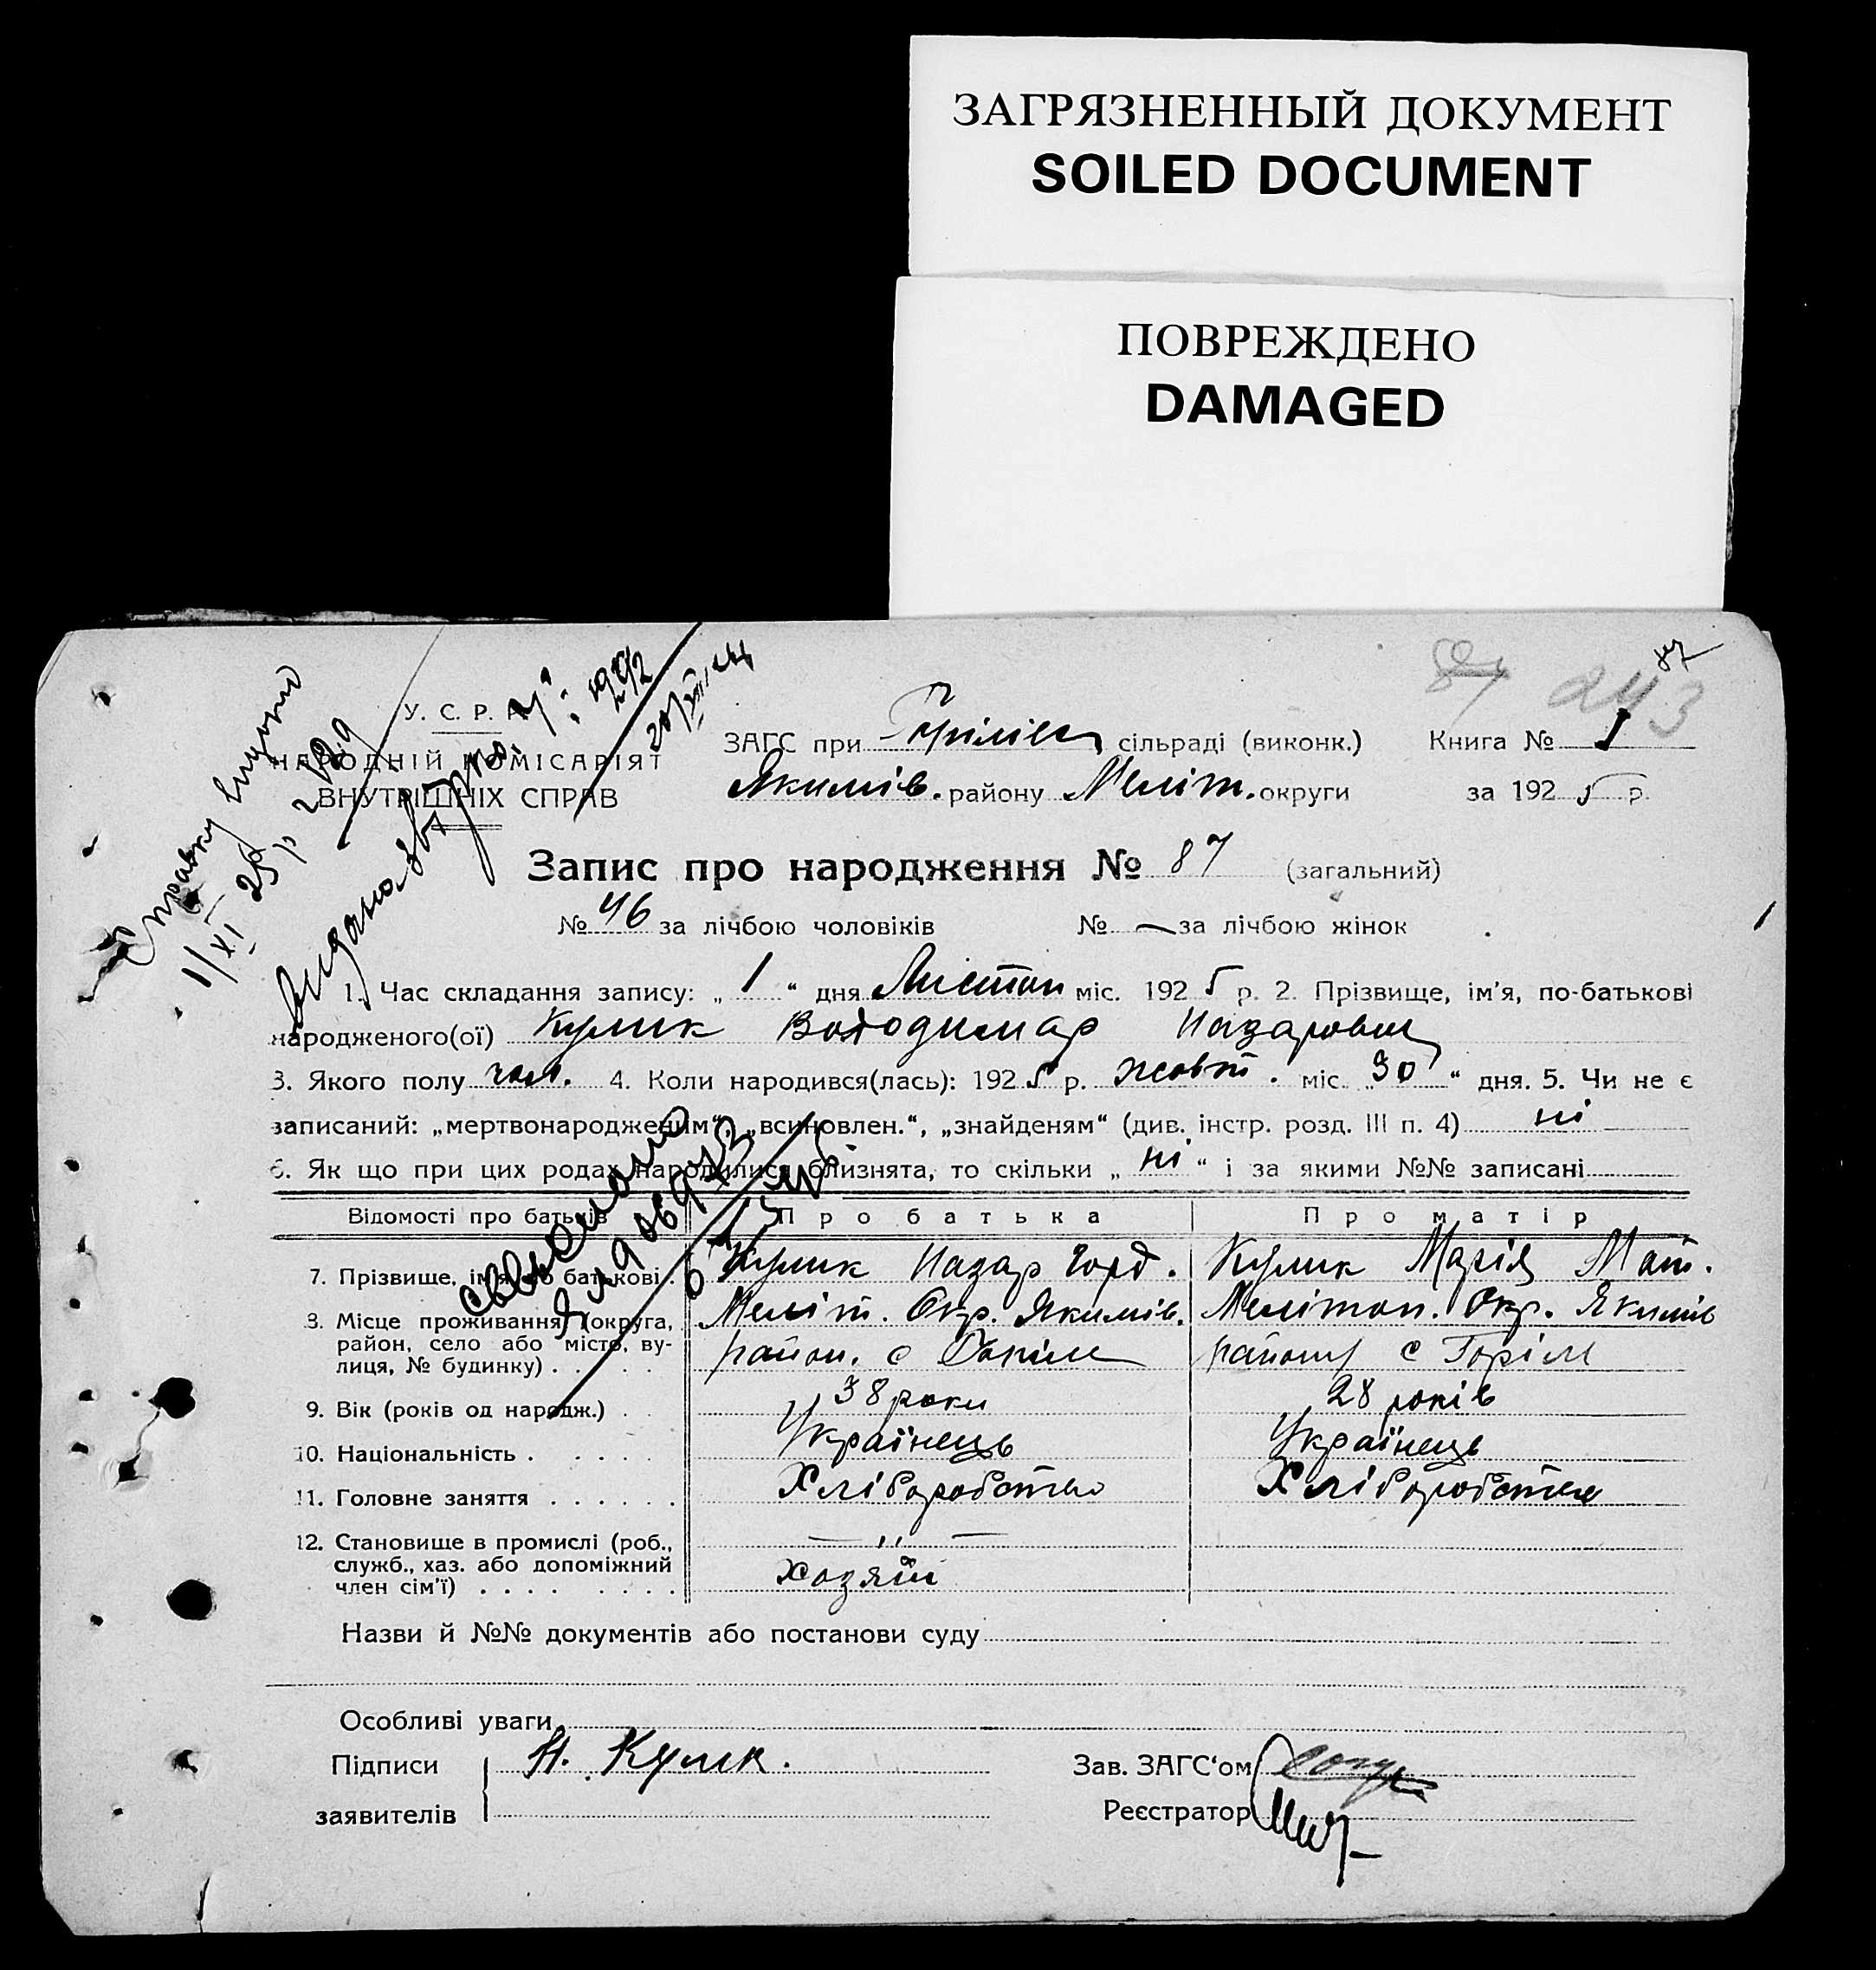 ЗАГРЯЗНЕННЫЙ ДОКУМЕНТ
SOILED DOCUMENT
ПОВРЕЖДЕНО
DAMAGED
87 243
У. С. Р. Р.
НАРОДНІЙ КОМІСАРІЯТ
ВНУТРІШНІХ СПРАВ
Справку видано
1/XI 25 р
ЗАГС при сільраді (виконк.) Книга № 1
Якимів. району Меліт. округи за 1925 р.
Запис про народження № 87 (загальний)
№ 46 за лічбою чоловіків № — за лічбою жінок
1. Час складання запису: „ 1 “ дня Листоп міс. 1925 р. 2. Прізвище, ім'я, по-батькові
народженого(ої) Кулик Володимар Назарович
3. Якого полу чол. 4. Коли народився(лась): 1925 р. жовт. міс. „30“ дня. 5. Чи не є
записаний: „мертвонародженим“, „всиновлен.“, „знайденям“ (див. інстр. розд. III п. 4) ні
6. Як що при цих родах народилися близнята, то скільки „ ні “ і за якими №№ записані
Відомості про батьків Про батька Про матір
7. Прізвище, ім'я по батькові. Кулик Назар Горд. Кулик Марія Мат.
8. Місце проживання (округа, Меліт. Окр. Якимів. Мелітоп. Окр. Якимів
район, село або місто, ву- район. с району с Горіл
лиця, № будинку) . . . .
9. Вік (років од народж.) . . 38 роки 28 років
10. Національність . . . . . Українець Українець
11. Головне заняття . . . . . . Хліборобство Хліборобство
12. Становище в промислі (роб., — „ —
служб., хаз. або допоміжний Хозяїн
член сім'ї) . . . . . . . .
Назви й №№ документів або постанови суду
Особливі уваги
Підписи Н. Кулик. Зав. ЗАГС‘ом
заявителів Реєстратор